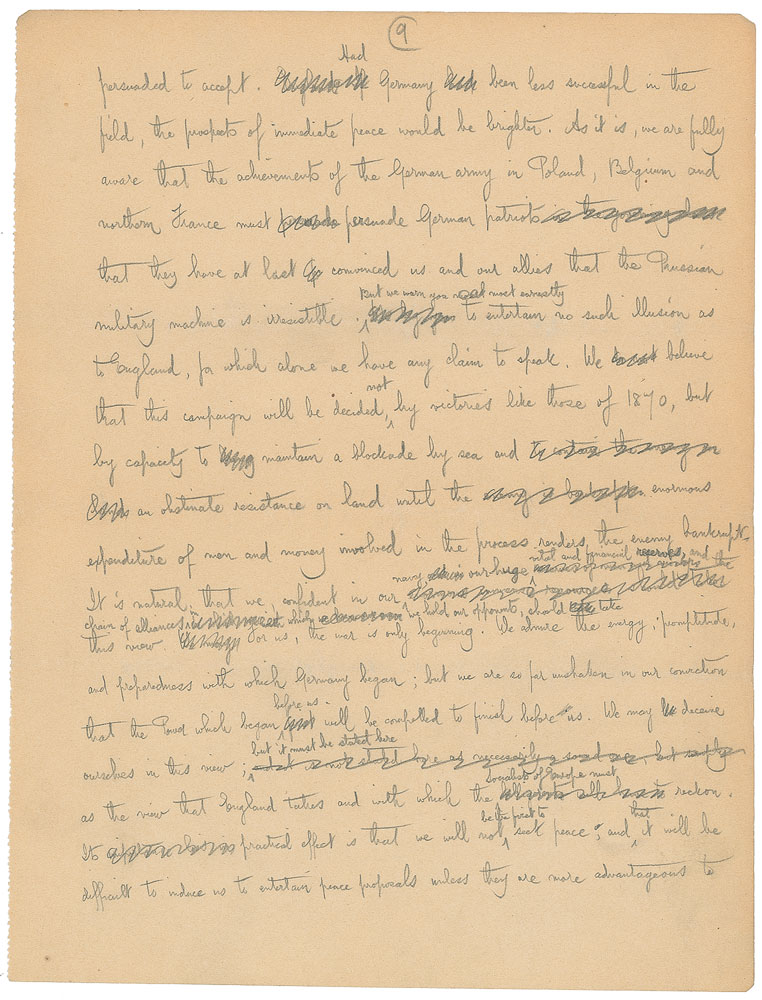 9
Had
persuaded to accept. Germany been less successful in the
field, the prospects of immediate peace would be brighter. As it is, we are fully
aware that the achievements of the German army in Poland, Belgium and
northern France must persuade German patriots
that they have at last convinced us and our allies that the Prussian
But we warn you most earnestly
military machine is irresistible. to entertain no such illusion as
to England, for which alone we have any claim to speak. We believe
not
that this campaign will be decided, by victories like those of 1870, but
by capacity to maintain a blockade by sea and
an obstinate resistance on land until the enormous
expenditure of men and money involved in the process renders the enemy bankrupt.
vital and financial reserves, and the
navy, our huge
It is natural that we, confident in our
chain of alliances in which we hold our opponents, should take
this view. For us, the war is only beginning. We admire the energy, promptitude,
and preparedness with which Germany began; but we are so far unshaken in our conviction
before us
that the Power which began will be compelled to finish before us. We may deceive
but it must be stated here
ourselves in this view;
Socialists of Europe must
as the view that England takes and with which the reckon.
be the first to that
Its practical effect is that we will not seek peace, and it will be
difficult to induce us to entertain peace proposals unless they are more advantageous to